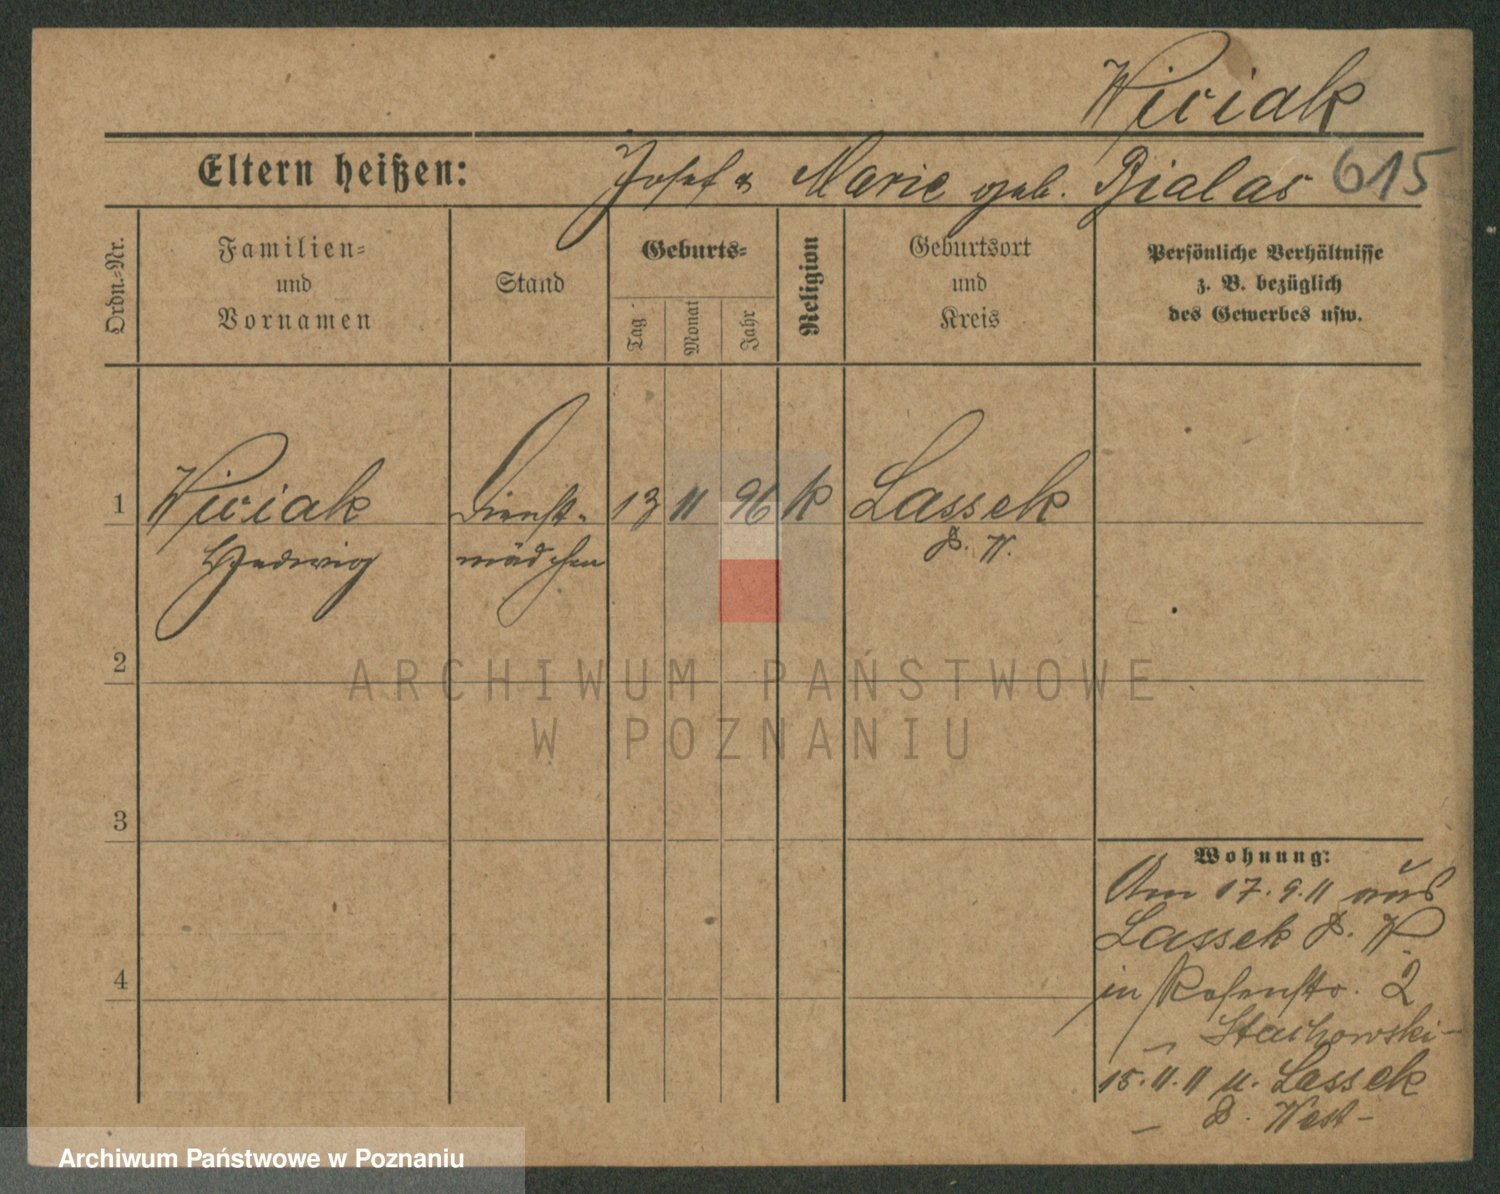 Wiciak
Eltern heißen: Josef & Marie geb. Bialas 615
Ordn.-Nr.
Familien-
und
Vornamen
Stand
Geburts-
Tag
Monat
Jahr
Religion
Geburtsort
und
Kreis
Persönliche Verhältnisse
z. B. bezüglich
des Gewerbes usw.
1 Wiciak Dienst- 13 11 96 k Lassek
Hedwig mädchen P. W.
2
ARCHIWUM PAŃSTWOWE
W POZNANIU
3
Wohnung:
Am 17.9.11 aus
Lassek P. W.
4
in Rosenstr. 2
Stachowski
15.11.11 n. Lassek
P. West
Archiwum Państwowe w Poznaniu